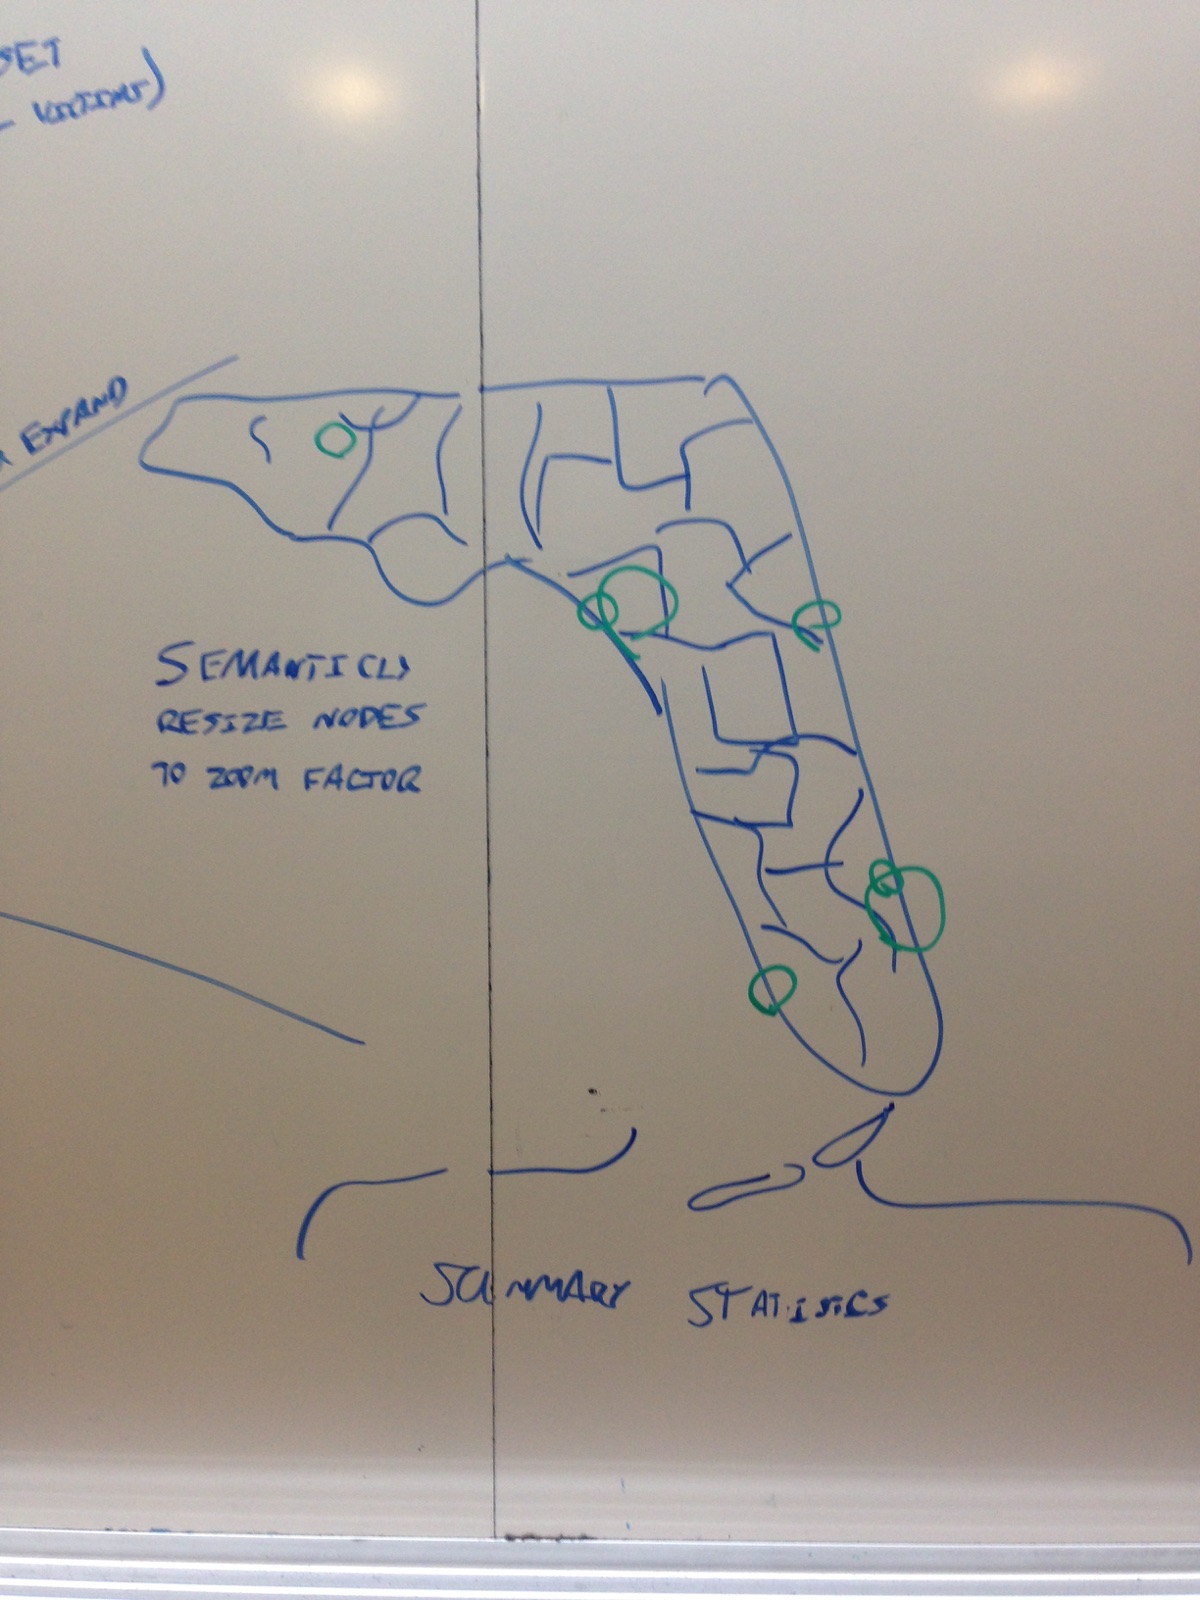 SET
VICTIMS)
EXPAND
SEMANTICLY
RESIZE NODES
TO ZOOM FACTOR
SUMMARY STATISTICS